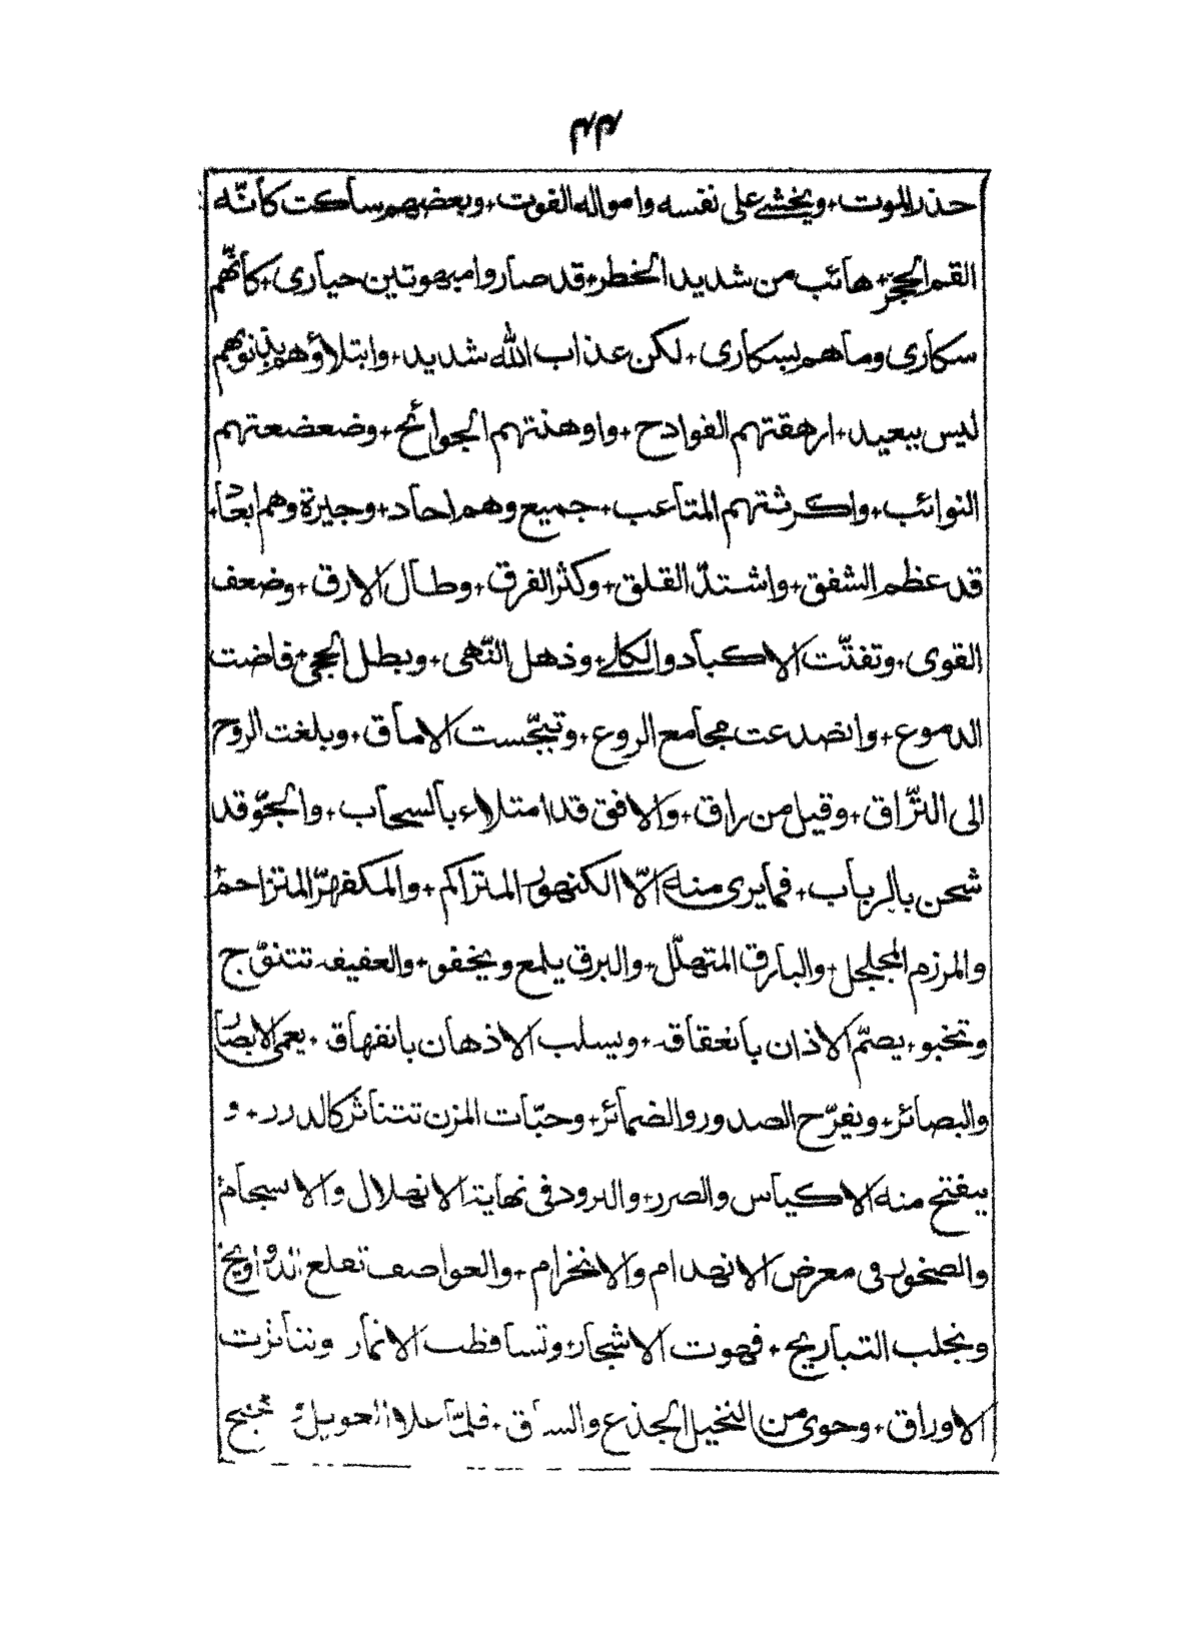 ۴۴
حذر الموت + ويخشى على نفسه وامواله الفوت + وبعضهم ساكت كأنّه
القم الحجر + هائب من شديد الخطر + قد صاروا مبهوتين حيارى + كأنّهم
سكارى وما هم بسكارى + لكن عذاب الله شديد + وابتلاؤهم بذنوبهم
ليس ببعيد + ارهقتهم الفوادح + واوهنتهم الجوائح + وضعضعتهم
النوائب + واكرثتهم المتاعب + جميع وهم احاد + وجيرة وهم ابعاد +
قد عظم الشفق + واشتدّ القلق + وكثر الفرق + وطال الارق + وضعف
القوى + وتفتّت الاكباد والكلے + وذهل النّهى + وبطل الحجى + فاضت
الدموع + وانصدعت مجامع الروع + وتبجّست الاماق + وبلغت الروح
الى التّراق + وقيل من راق + والافق قد امتلاء بالسحاب + والجوّ قد
شحن بالرباب + فما يرى منه الّا الكنهور المتراكم + والمكفهرّ المتزاحم +
والمرزم المجلجل + والبارق المتهلّل + والبرق يلمع ويخفو + والعفيفه تتنفّج
وتخبو + يصمّ الاذان بانعقاقه + ويسلب الاذهان بانفهاق + يعمى الابصار
والبصائر + ويفرّح الصدور والضمائر + وحبّات المزن تتناثر كالدرر + و
يفتح منه الاكياس والصرر + والدرود فى نهاية الانهلال والاسجام +
والصخور فى معرض الانهدام والانخرام + والعواصف تقلع الدواويخ
وتجلب التباريح + فهوت الاشجار + وتساقطت الاثمار وتناثرت
الاوراق + وحوى من النخيل الجذع والساق + فلمّا علا العويل